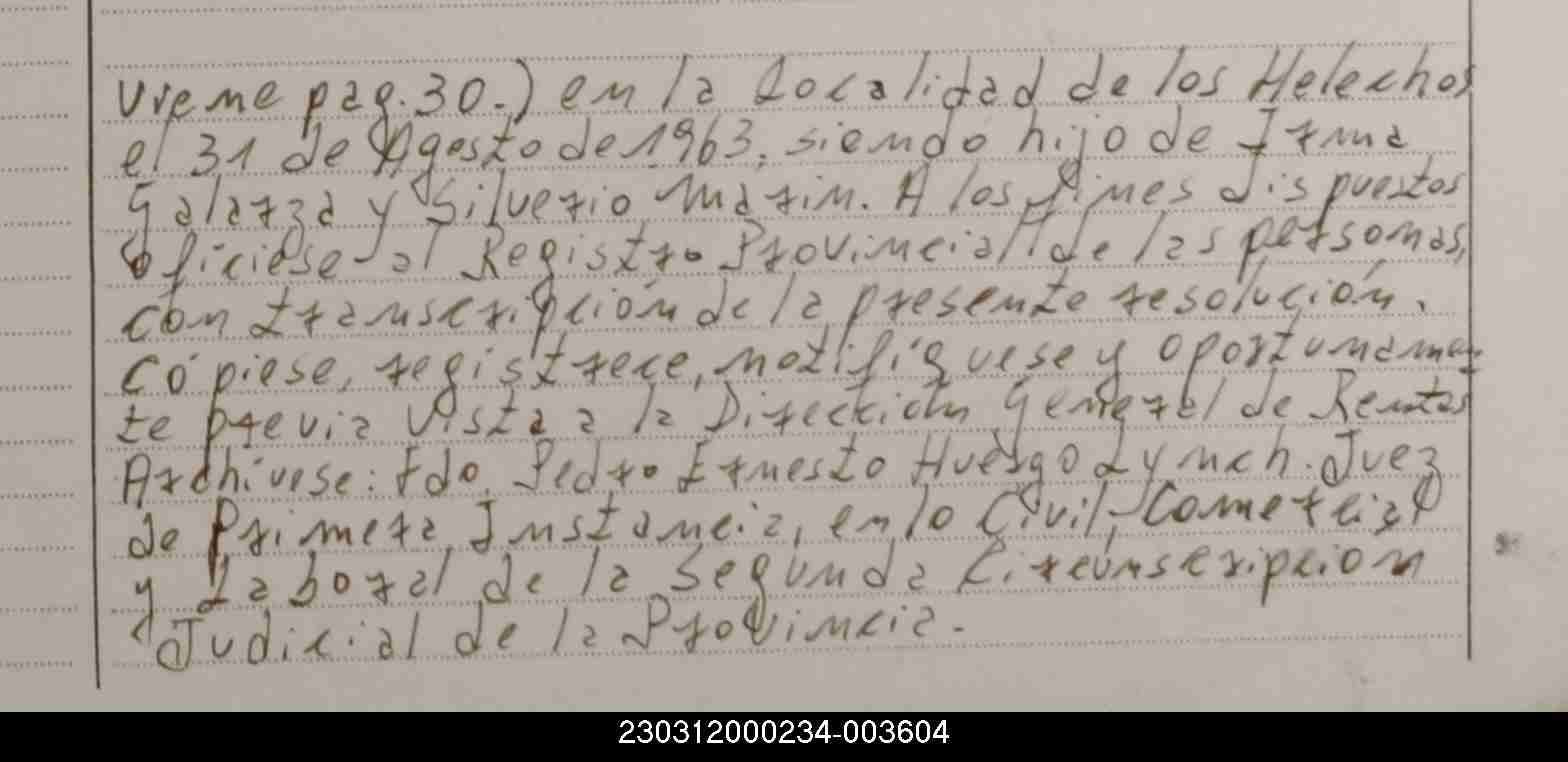 vieme pag. 30.) en la Localidad de los Helechos
el 31 de Agosto de 1963, siendo hijo de Irma
Galarza y Silverio Marin. A los fines dispuestos
ofíciese al Registro Provincial de las personas,
con transcripción de la presente resolución.
Cópiese, registrece, notifíquese y oportunamen
te previa vista a la Dirección General de Rentas
Archivese: Fdo. Pedro Ernesto Huergo Lynch. Juez
de Primera Instancia, en lo Civil, Comercial
y Laboral de la Segunda Circunscripcion
Judicial de la Provincia.
230312000234-003604